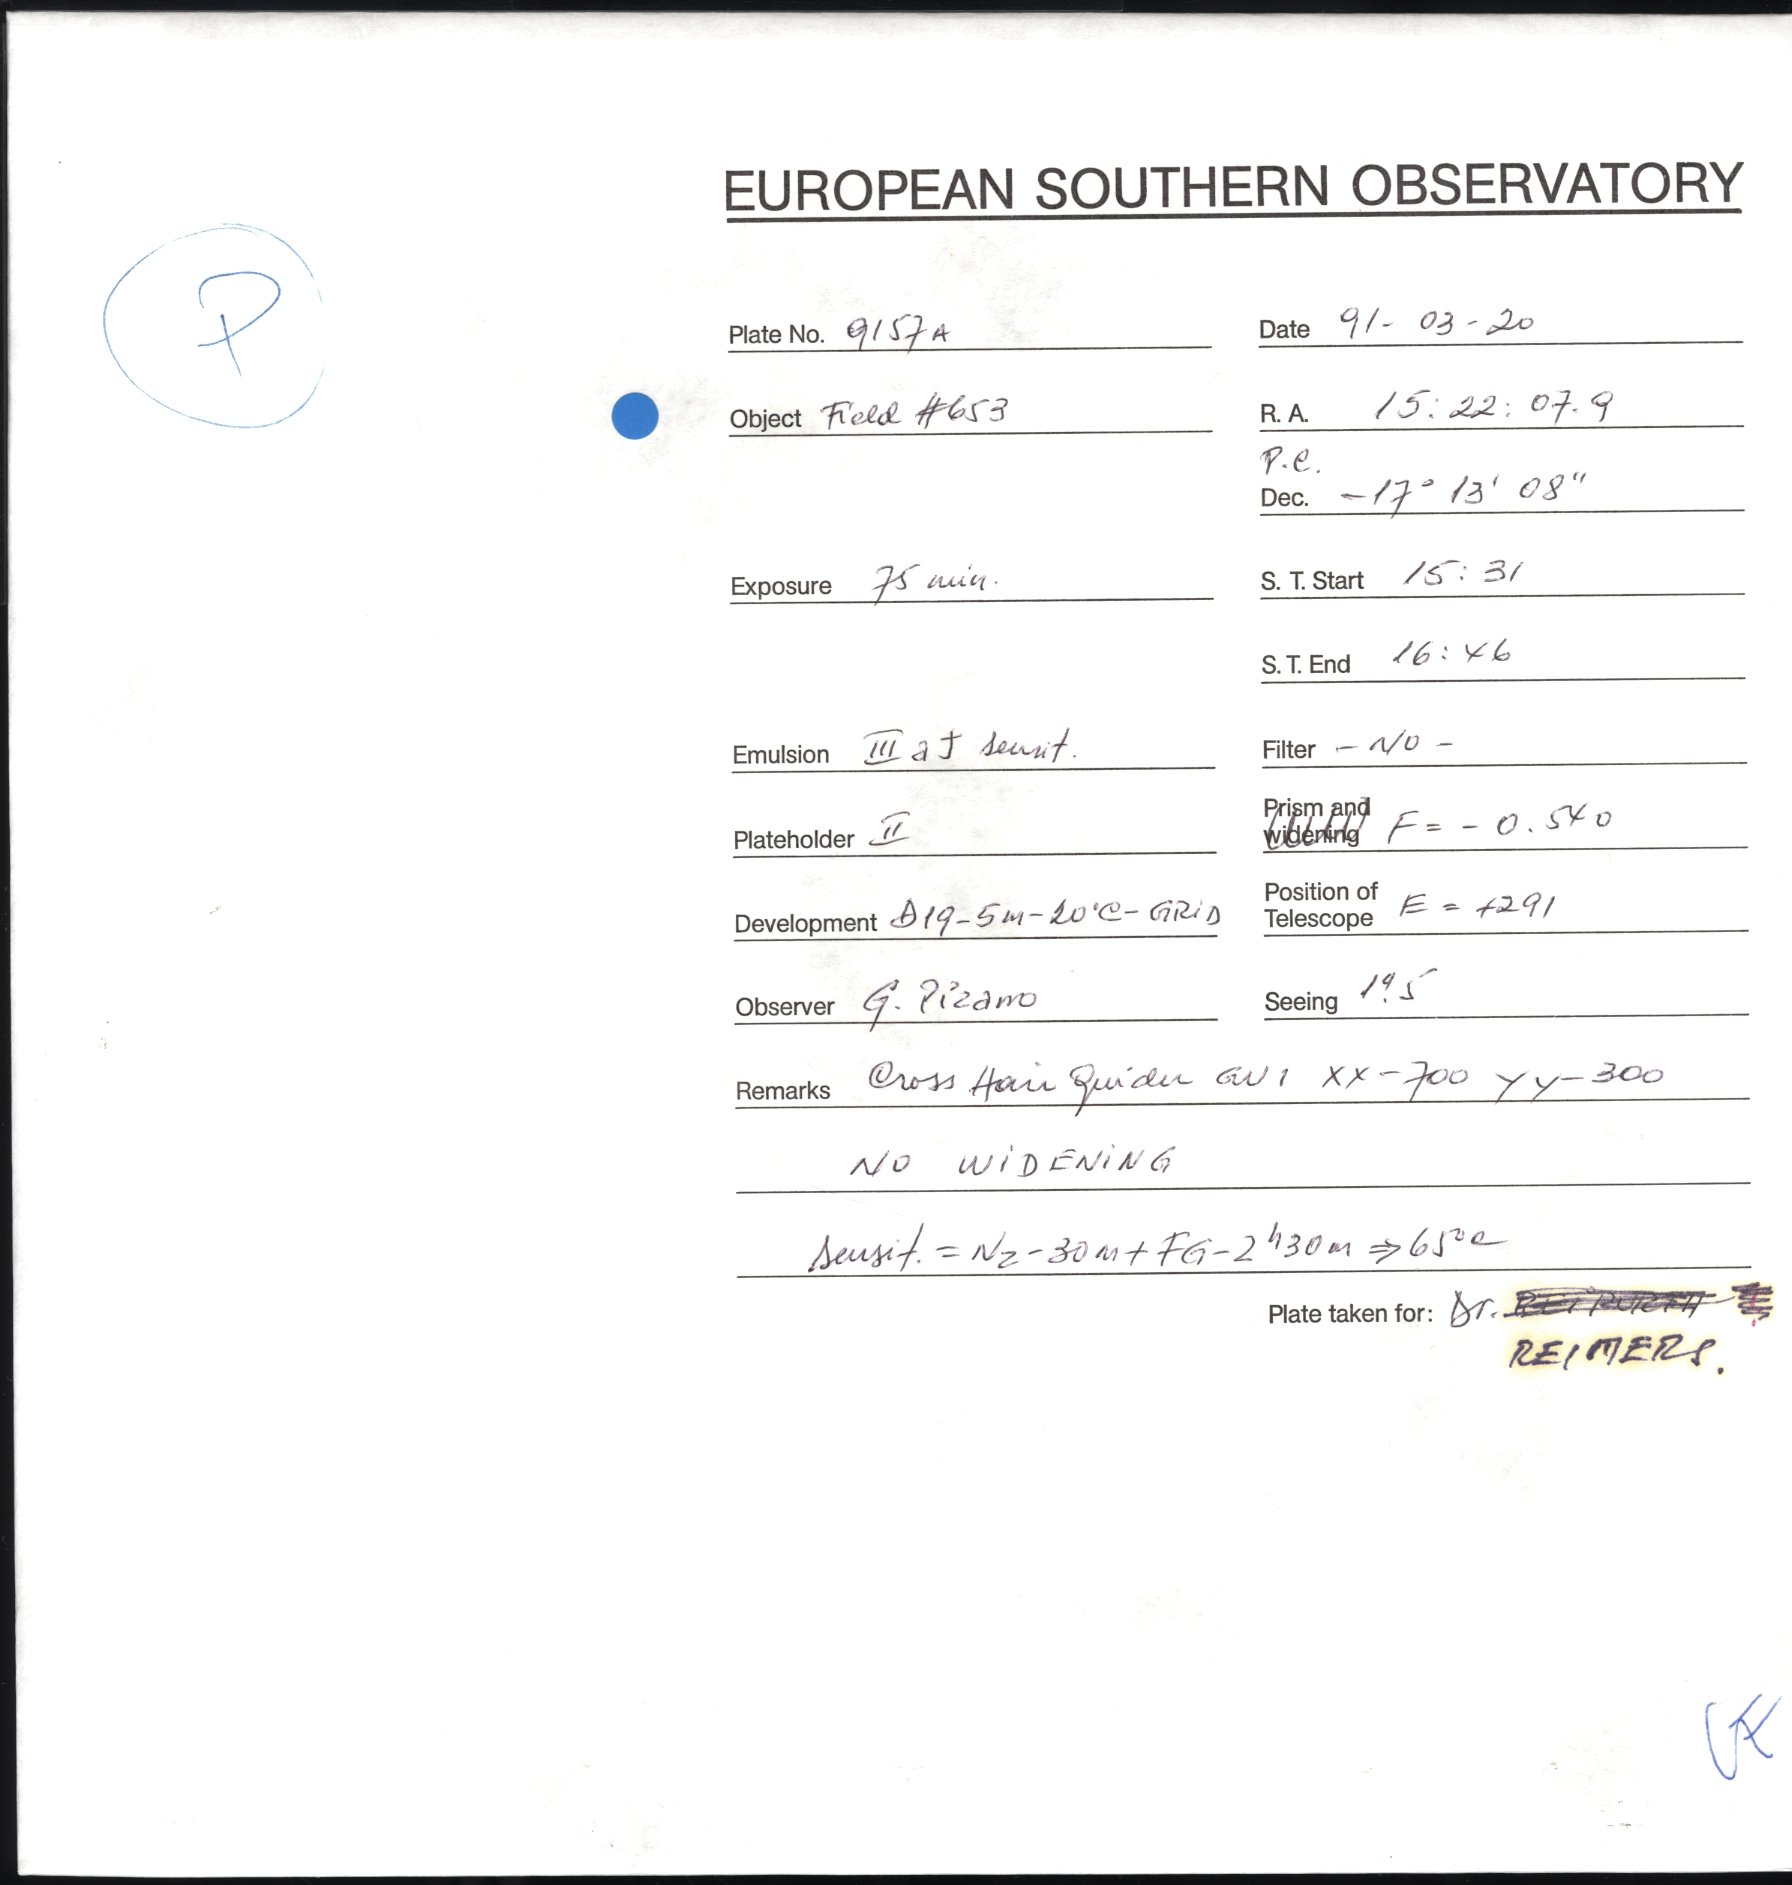 EUROPEAN SOUTHERN OBSERVATORY
P
Plate No. 9157A
Date 91-03-20
Object Field #653
R. A. 15:22:07.9
P.C.
Dec. -17° 13' 08"
Exposure 75 min.
S. T. Start 15:31
S. T. End 16:46
Emulsion III a J sensit.
Filter - NO -
Plateholder II
Prism and widening F = - 0.540
Development D19-5m-20°C-GRiD
Position of Telescope E = +291
Observer G. Pizarro
Seeing 1".5
Remarks Cross Hair Guider GW1 XX-700 YY-300
NO WiDENiNG
Sensit. = N2-30m + FG-2h30m ⇒ 65°C
Plate taken for: Dr.
REIMERS.